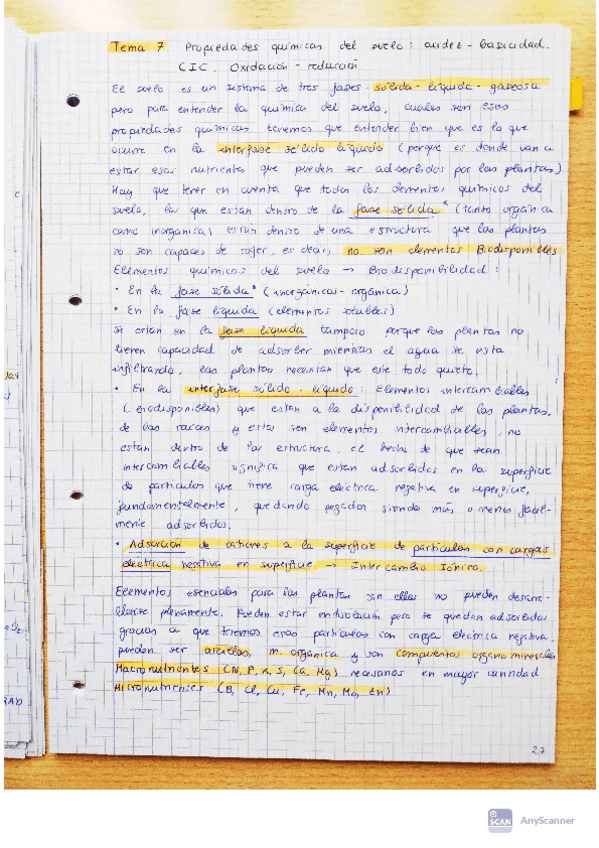 Tema 7. Propiedades químicas del suelo: acidez - basicidad.
CIC. Oxidación - reducción
El suelo es un sistema de tres fases sólida - líquida - gaseosa
pero para entender la química del suelo, cuales son esas
propiedades químicas tenemos que entender bien que es lo que
ocurre en la interfase sólido líquido (porque es donde van a
estar esos nutrientes que pueden ser adsorbidos por las plantas)
Hay que tener en cuenta que todos los elementos químicos del
suelo, los que están dentro de la fase sólida * (tanto orgánica
como inorgánica) están dentro de una estructura que las plantas
no son capaces de coger, es decir, no son elementos Biodisponibles
Elementos químicos del suelo → Biodisponibilidad:
· En la fase sólida * (inorgánica - orgánica)
· En la fase líquida (elementos solubles)
Si están en la fase líquida tampoco porque las plantas no
tienen capacidad de adsorber mientras el agua se está
infiltrando, las plantas necesitan que esté todo quieto.
· En la interfase sólido - líquido: Elementos intercambiables
(biodisponibles) que están a la disponibilidad de las plantas,
de las raíces y estos son elementos intercambiables, no
están dentro de las estructura, el hecho de que sean
intercambiables significa que están adsorbidos en la superficie
de partículas que tiene carga eléctrica negativa en superficie,
fundamentalmente, quedando pegados siendo más o menos facil-
mente adsorbidos.
· Adsorción de cationes a la superficie de partículas con cargas
eléctrica negativa en superficie → Intercambio Iónico.
Elementos esenciales para las plantas sin ellos no pueden desarro-
llarse plenamente. Pueden estar en disolución pero te quedan adsorbidos
gracias a que tenemos esas partículas con carga eléctrica negativa.
pueden ser arcillas, m. orgánica y son compuestos organo minerales
Macronutrientes (N, P, K, S, Ca, Mg) necesarios en mayor cantidad
Micronutrientes (B, Cl, Cu, Fe, Mn, Mo, Zn)
27
SCAN AnyScanner